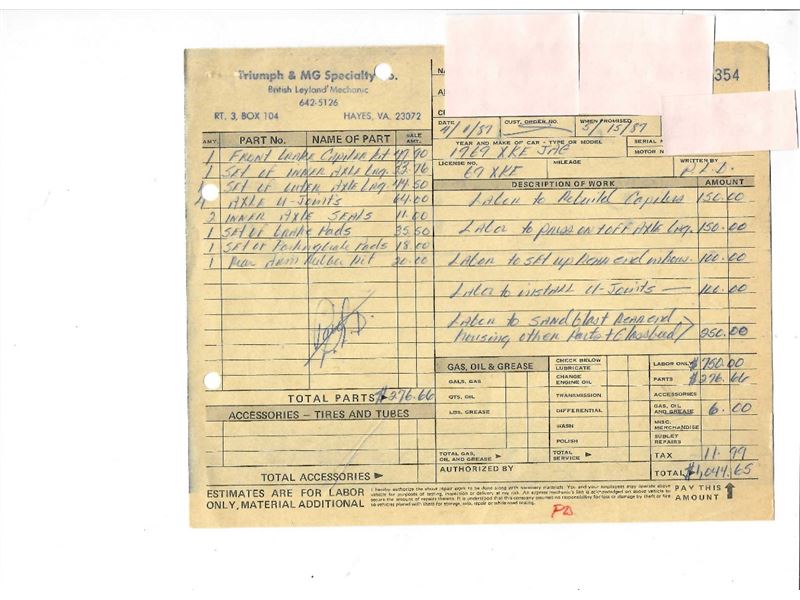 Triumph & MG Specialty Co.
British Leyland Mechanic
642-5126
RT. 3, BOX 104 HAYES, VA. 23072
354
DATE 4/1/87 CUST. ORDER NO. WHEN PROMISED 5/15/87
YEAR AND MAKE OF CAR - TYPE OR MODEL SERIAL
1969 XKE JAG MOTOR N
LICENSE NO. 69 XKE MILEAGE WRITTEN BY P.L.D.
AMT. PART No. NAME OF PART SALE AMT.
1 Front brake Caliper kit 47.90
1 Set of inner Axle brg. 33.76
Set of outer Axle brg. 44.50
4 Axle U-Joints 64.00
2 inner Axle Seals 11.00
1 Set of brake Pads 35.50
1 Set of Parking brake Pads 18.00
1 Rear Arm Rubber Kit 20.00
TOTAL PARTS $276.66
ACCESSORIES – TIRES AND TUBES
TOTAL ACCESSORIES ►
ESTIMATES ARE FOR LABOR
ONLY, MATERIAL ADDITIONAL
DESCRIPTION OF WORK AMOUNT
Labor to Rebuild Calipers 150.00
Labor to press on + off Axle brg. 150.00
Labor to set up Rear end 100.00
Labor to install U-Joints — 100.00
Labor to Sandblast Rear end
housing other Parts + Glassbead 250.00
GAS, OIL & GREASE
GALS. GAS
QTS. OIL
LBS. GREASE
TOTAL GAS, OIL AND GREASE ►
CHECK BELOW
LUBRICATE
CHANGE ENGINE OIL
TRANSMISSION
DIFFERENTIAL
WASH
POLISH
TOTAL SERVICE ►
LABOR ONLY $750.00
PARTS $276.66
ACCESSORIES
GAS, OIL AND GREASE 6.00
MISC. MERCHANDISE
SUBLET REPAIRS
TAX 11.99
TOTAL $1,044.65
AUTHORIZED BY
I hereby authorize the above repair work to be done along with necessary materials. You and your employees may operate above
vehicle for purposes of testing, inspection or delivery at my risk. An express mechanic's lien is acknowledged on above vehicle to
secure the amount of repairs thereto. It is understood that this company assumes no responsibility for loss or damage by theft or fire
to vehicles placed with them for storage, sale, repair or while road testing.
PAY THIS
AMOUNT
PD